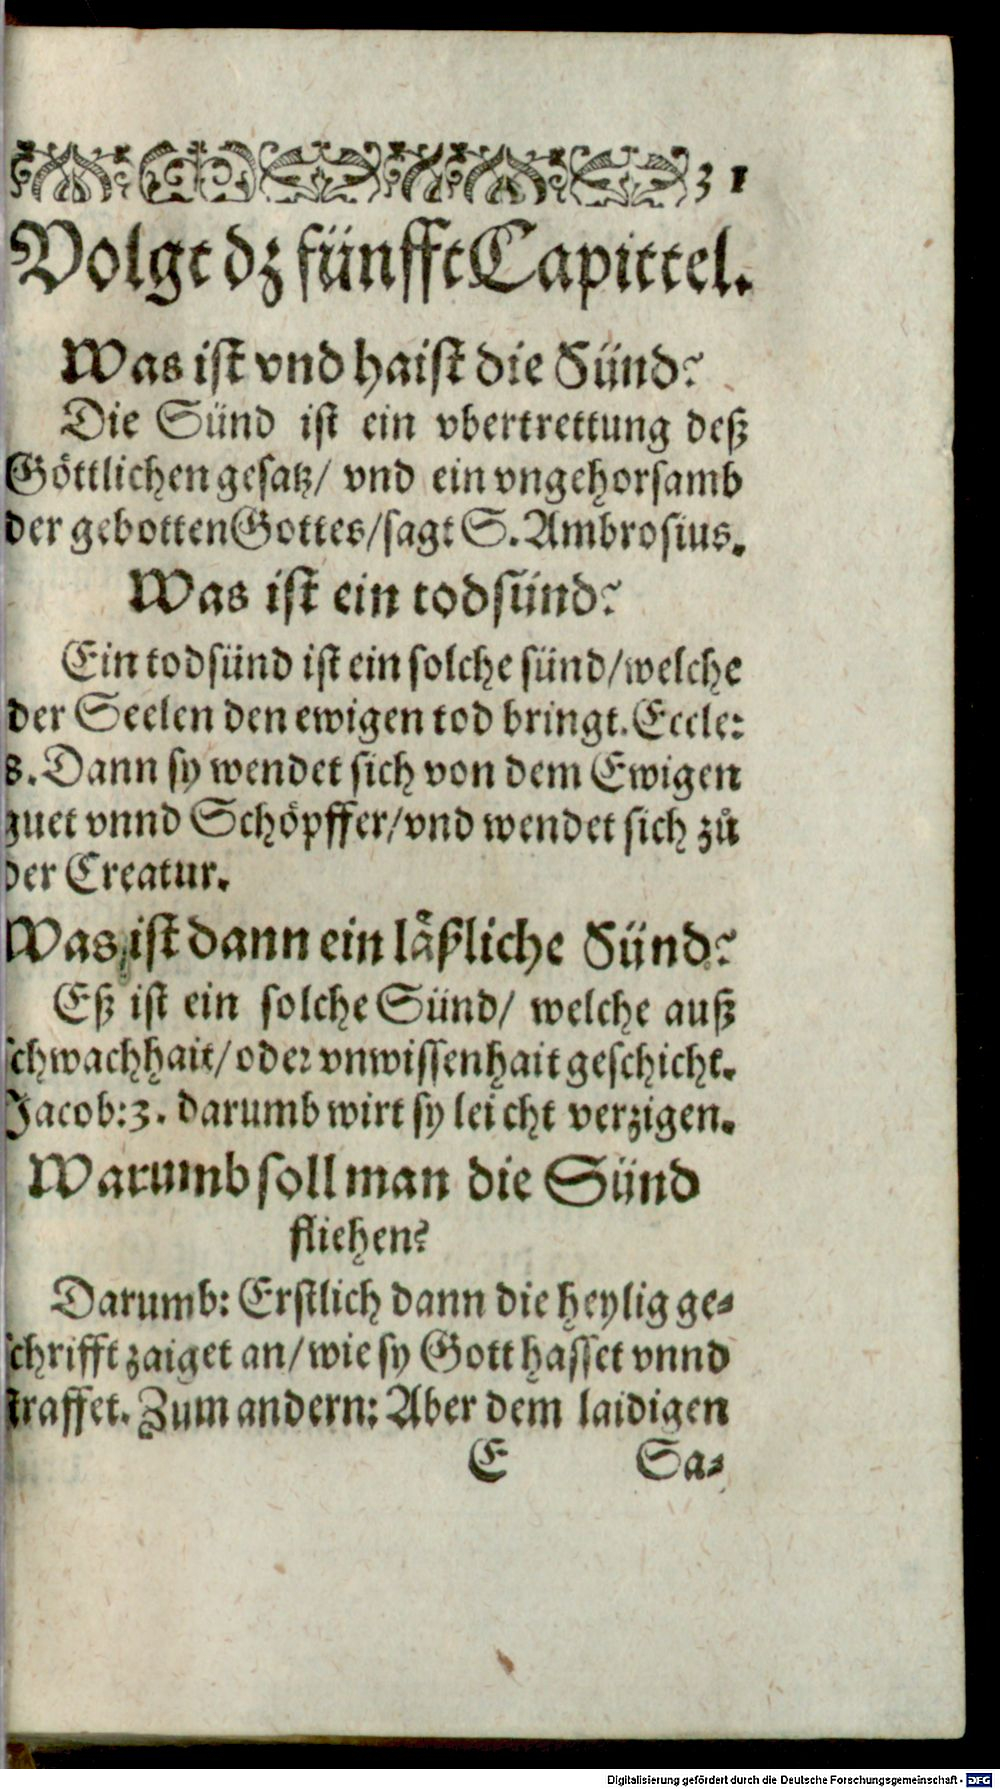 31
Volgt dz fünfft Capittel.
Was ist vnd haist die Sünd?
Die Sünd ist ein vbertrettung deß
Göttlichen gesatz/ vnd ein vngehorsamb
der gebotten Gottes/sagt S. Ambrosius.
Was ist ein todsünd?
Ein todsünd ist ein solche sünd/welche
der Seelen den ewigen tod bringt. Eccle:
8. Dann sy wendet sich von dem Ewigen
guet vnnd Schöpffer/vnd wendet sich zuͦ
der Creatur.
Was ist dann ein läßliche Sünd?
Eß ist ein solche Sünd/ welche auß
schwachhait/oder vnwissenhait geschicht.
Jacob:3. darumb wirt sy leicht verzigen.
Warumb soll man die Sünd
fliehen?
Darumb: Erstlich dann die heylig ge-
schrifft zaiget an/wie sy Gott hasset vnnd
straffet. Zum andern: Aber dem laidigen
E Sa-
Digitalisierung gefördert durch die Deutsche Forschungsgemeinschaft - DFG